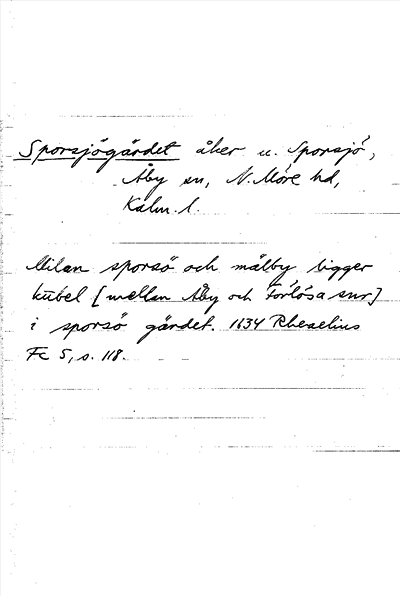 Sporsjögärdet åker u. Sporsjö,
Åby sn, N. Möre hd,
Kalm. l.
Milan sporsö och målby ligger
kubel [mellan Åby och Förlösa snr]
i sporsö gärdet. 1634 Rhezelius
Fc 5, s. 118.